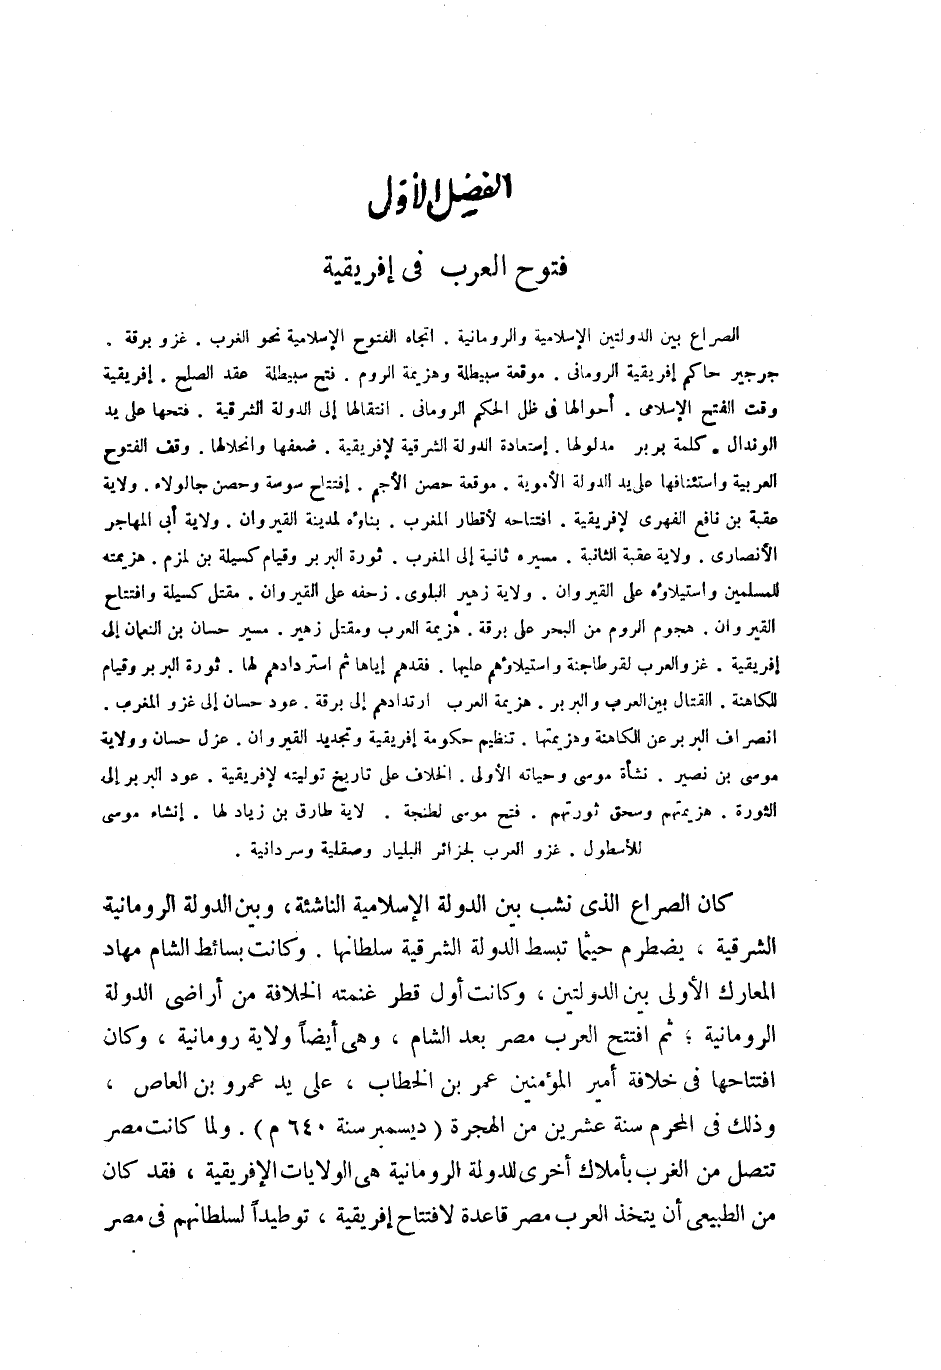 الفصل الأول
فتوح العرب فى إفريقية
الصراع بين الدولتين الإسلامية والرومانية . اتجاه الفتوح الإسلامية نحو الغرب . غزو برقة .
جرجير حاكم إفريقية الرومانى . موقعة سبيطلة وهزيمة الروم . فتح سبيطلة عقد الصلح . إفريقية
وقت الفتح الإسلامى . أحوالها فى ظل الحكم الرومانى . انتقالها إلى الدولة الشرقية . فتحها على يد
الوندال . كلمة بربر مدلولها . إستعادة الدولة الشرقية لإفريقية . ضعفها وانحلالها . وقف الفتوح
العربية واستئنافها على يد الدولة الأموية . موقعة حصن الأجم . إفتتاح سوسة وحصن جالولاء . ولاية
عقبة بن نافع الفهرى لإفريقية . افتتاحه لأقطار المغرب . بناؤه لمدينة القيروان . ولاية أبى المهاجر
الأنصارى . ولاية عقبة الثانية . مسيره ثانية إلى المغرب . ثورة البربر وقيام كسيلة بن لمزم . هزيمته
للمسلمين واستيلاؤه على القيروان . ولاية زهير البلوى . زحفه على القيروان . مقتل كسيلة وافتتاح
القيروان . هجوم الروم من البحر على برقة . هزيمة العرب ومقتل زهير . مسير حسان بن النعمان إلى
إفريقية . غزو العرب لقرطاجنة واستيلاؤهم عليها . فقدهم إياها ثم استردادهم لها . ثورة البربر وقيام
الكاهنة . القتال بين العرب والبربر . هزيمة العرب ارتدادهم إلى برقة . عود حسان إلى غزو المغرب .
انصراف البربر عن الكاهنة وهزيمتها . تنظيم حكومة إفريقية وتجديد القيروان . عزل حسان وولاية
موسى بن نصير . نشأة موسى وحياته الأولى . الخلاف على تاريخ توليته لإفريقية . عود البربر إلى
الثورة . هزيمتهم وسحق ثورتهم . فتح موسى لطنجة . لاية طارق بن زياد لها . إنشاء موسى
للأسطول . غزو العرب لجزائر البليار وصقلية وسردانية .
كان الصراع الذى نشب بين الدولة الإسلامية الناشئة ، وبين الدولة الرومانية
الشرقية ، يضطرم حيثما تبسط الدولة الشرقية سلطانها . وكانت بسائط الشام مهاد
المعارك الأولى بين الدولتين ، وكانت أول قطر غنمته الخلافة من أراضى الدولة
الرومانية ؛ ثم افتتح العرب مصر بعد الشام ، وهى أيضاً ولاية رومانية ، وكان
افتتاحها فى خلافة أمير المؤمنين عمر بن الخطاب ، على يد عمرو بن العاص ،
وذلك فى المحرم سنة عشرين من الهجرة ( ديسمبر سنة ٦٤٠ م ) . ولما كانت مصر
تتصل من الغرب بأملاك أخرى للدولة الرومانية هى الولايات الإفريقية ، فقد كان
من الطبيعى أن يتخذ العرب مصر قاعدة لافتتاح إفريقية ، توطيداً لسلطانهم فى مصر